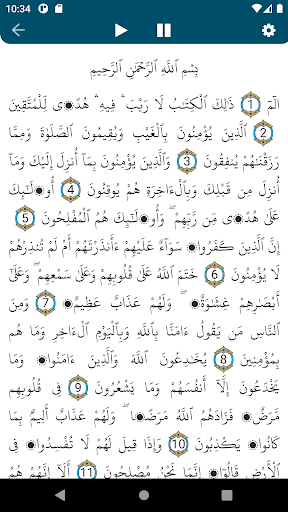 10:34
بِسْمِ اللَّهِ الرَّحْمَٰنِ الرَّحِيمِ
الٓمٓ 1 ذَٰلِكَ الْكِتَٰبُ لَا رَيْبَ ۛ فِيهِ ۛ هُدًى لِّلْمُتَّقِينَ
2 الَّذِينَ يُؤْمِنُونَ بِالْغَيْبِ وَيُقِيمُونَ الصَّلَوٰةَ وَمِمَّا
رَزَقْنَٰهُمْ يُنفِقُونَ 3 وَالَّذِينَ يُؤْمِنُونَ بِمَآ أُنزِلَ إِلَيْكَ وَمَآ
أُنزِلَ مِن قَبْلِكَ وَبِالْءَاخِرَةِ هُمْ يُوقِنُونَ 4 أُو۟لَٰٓئِكَ
عَلَىٰ هُدًى مِّن رَّبِّهِمْ ۖ وَأُو۟لَٰٓئِكَ هُمُ الْمُفْلِحُونَ 5
إِنَّ الَّذِينَ كَفَرُوا۟ سَوَآءٌ عَلَيْهِمْ ءَأَنذَرْتَهُمْ أَمْ لَمْ تُنذِرْهُمْ
لَا يُؤْمِنُونَ 6 خَتَمَ اللَّهُ عَلَىٰ قُلُوبِهِمْ وَعَلَىٰ سَمْعِهِمْ ۖ وَعَلَىٰٓ
أَبْصَٰرِهِمْ غِشَٰوَةٌ ۖ وَلَهُمْ عَذَابٌ عَظِيمٌ 7 وَمِنَ
النَّاسِ مَن يَقُولُ ءَامَنَّا بِاللَّهِ وَبِالْيَوْمِ الْءَاخِرِ وَمَا هُم
بِمُؤْمِنِينَ 8 يُخَٰدِعُونَ اللَّهَ وَالَّذِينَ ءَامَنُوا۟ وَمَا
يَخْدَعُونَ إِلَّآ أَنفُسَهُمْ وَمَا يَشْعُرُونَ 9 فِى قُلُوبِهِم
مَّرَضٌ فَزَادَهُمُ اللَّهُ مَرَضًا ۖ وَلَهُمْ عَذَابٌ أَلِيمٌۢ بِمَا
كَانُوا۟ يَكْذِبُونَ 10 وَإِذَا قِيلَ لَهُمْ لَا تُفْسِدُوا۟ فِى
الْأَرْضِ قَالُوٓا۟ إِنَّمَا نَحْنُ مُصْلِحُونَ 11 أَلَآ إِنَّهُمْ هُمُ